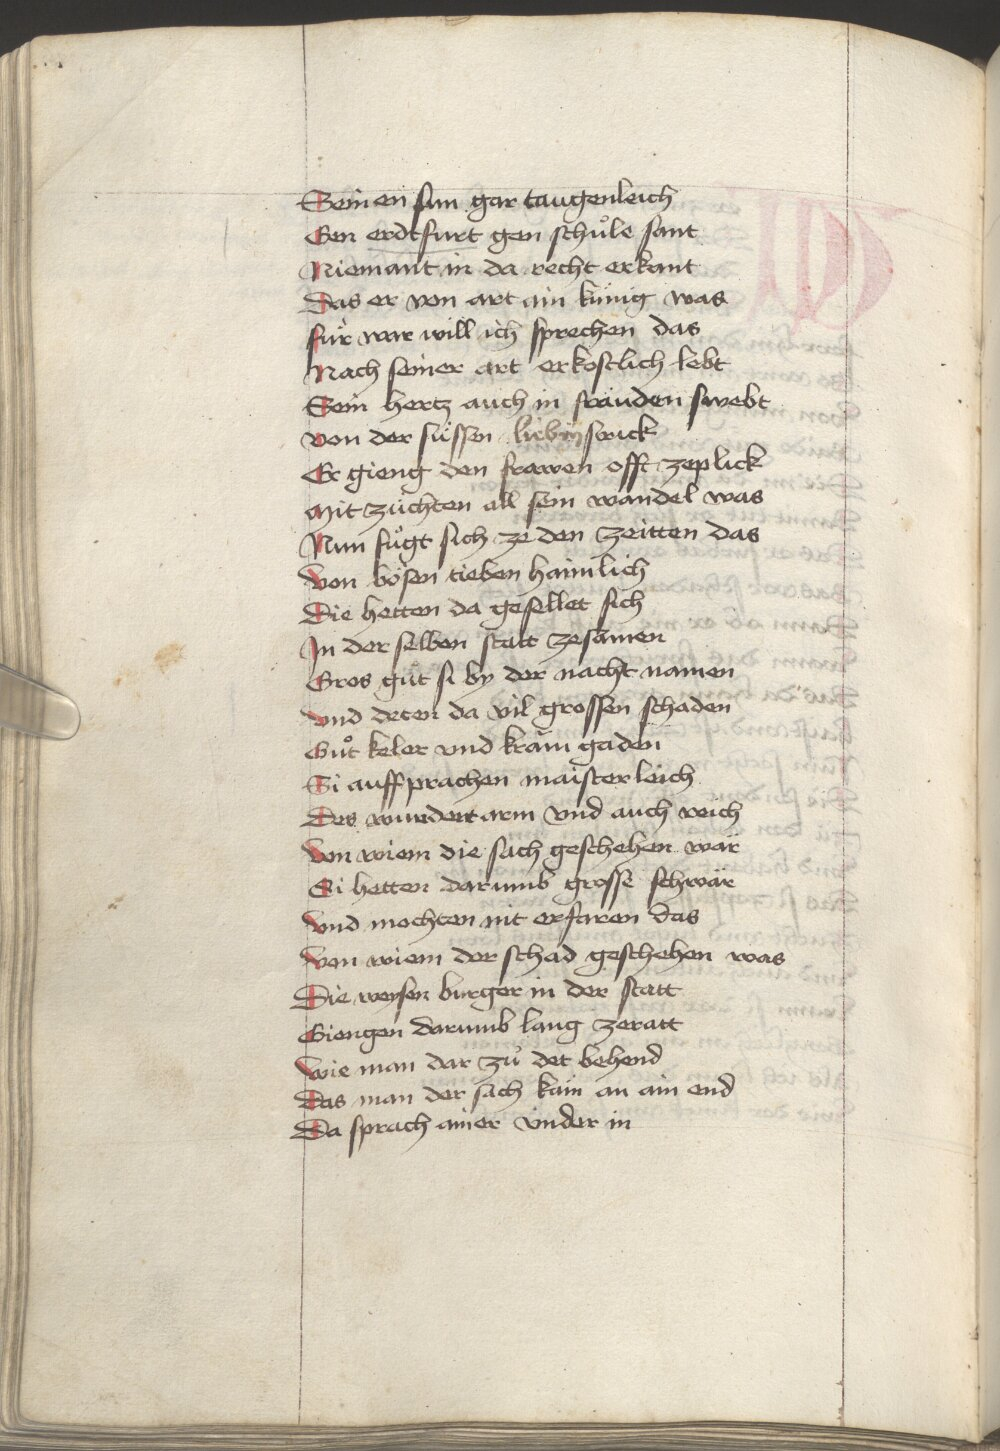 Seinen sun gar taugenleich
Gen erdtfurt gen schuͦle sant
Niemant in da recht erkant
Das er von art ain künig was
für war will ich sprechen das
Nach seiner art er kostlich lebt
Sein hertz auch in fräuden swebt
von der süssen liebin strick
Er gieng den frawen offt zeplick
Mit züchten all sein wandel was
Nun fuͦgt sich ze den zeitten das
von bösen tieben haimlich
Die hetten da gesellet sich
In der selben statt zesamen
Gros guͦt si by der nacht namen
vnd deten da vil grossen schaden
Guͦt keler vnd kräm gaden
Si auffprachen maisterleich
Des wundert arm vnd auch reich
Von wiem die sach geschehen wär
Si hetten darumb grosse schwär
vnd mochten nit erfaren das
Von wiem der schad geschehen was
Die weysen burger in der statt
Giengen darumb lang zeratt
wie man dar zuͦ det behend
Das man der sach käm an ain end
Da sprach ainer vnder in